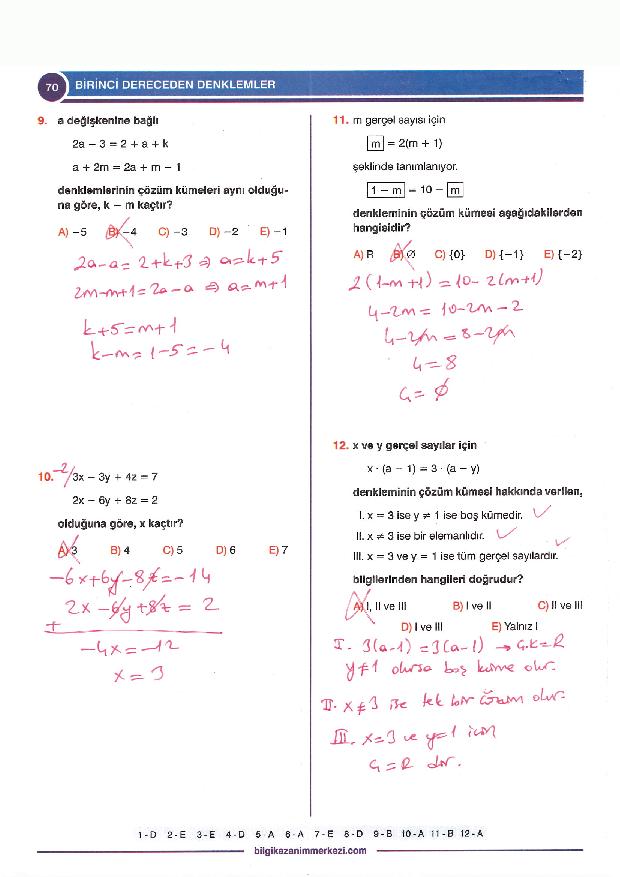 70 BİRİNCİ DERECEDEN DENKLEMLER
9. a değişkenine bağlı
2a – 3 = 2 + a + k
a + 2m = 2a + m – 1
denklemlerinin çözüm kümeleri aynı olduğu-
na göre, k – m kaçtır?
A) –5 B) –4 C) –3 D) –2 E) –1
2a-a = 2+k+3 ⇒ a=k+5
2m-m+1=2a-a ⇒ a=m+1
k+5=m+1
k-m=1-5=-4
10. -2/ 3x – 3y + 4z = 7
2x – 6y + 8z = 2
olduğuna göre, x kaçtır?
A) 3 B) 4 C) 5 D) 6 E) 7
-6x+6y-8z=-14
2x-6y+8z = 2
+
-4x=-12
x = 3
11. m gerçel sayısı için
m = 2(m + 1)
şeklinde tanımlanıyor.
1 – m = 10 – m
denkleminin çözüm kümesi aşağıdakilerden
hangisidir?
A) R B) Ø C) {0} D) {–1} E) {–2}
2(1-m+1)=10-2(m+1)
4-2m = 10-2m-2
4-2m = 8-2m
4=8
Ç= Ø
12. x ve y gerçel sayılar için
x · (a – 1) = 3 · (a – y)
denkleminin çözüm kümesi hakkında verilen,
I. x = 3 ise y ≠ 1 ise boş kümedir.
II. x ≠ 3 ise bir elemanlıdır.
III. x = 3 ve y = 1 ise tüm gerçel sayılardır.
bilgilerinden hangileri doğrudur?
A) I, II ve III B) I ve II C) II ve III
D) I ve III E) Yalnız I
I - 3(a-1) = 3(a-1) → Ç.K=R
y≠1 olursa boş küme olur.
II. x≠3 ise tek bir çözüm olur.
III. x=3 ve y=1 için
Ç=R dir.
1 - D 2 - E 3 - E 4 - D 5 - A 6 - A 7 - E 8 - D 9 - B 10 - A 11 - B 12 - A
bilgikazanimmerkezi.com